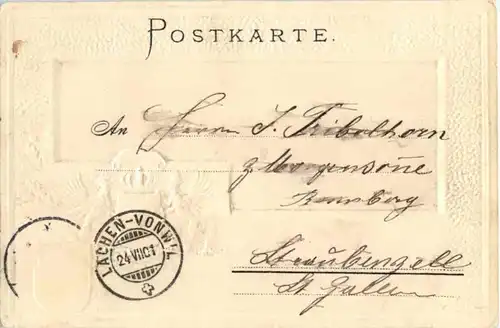 POSTKARTE.
An Herrn J. Tribelhorn
z. Morgensonne
Straubenzell
St Gallen
LACHEN-VONWIL
24 VII 01